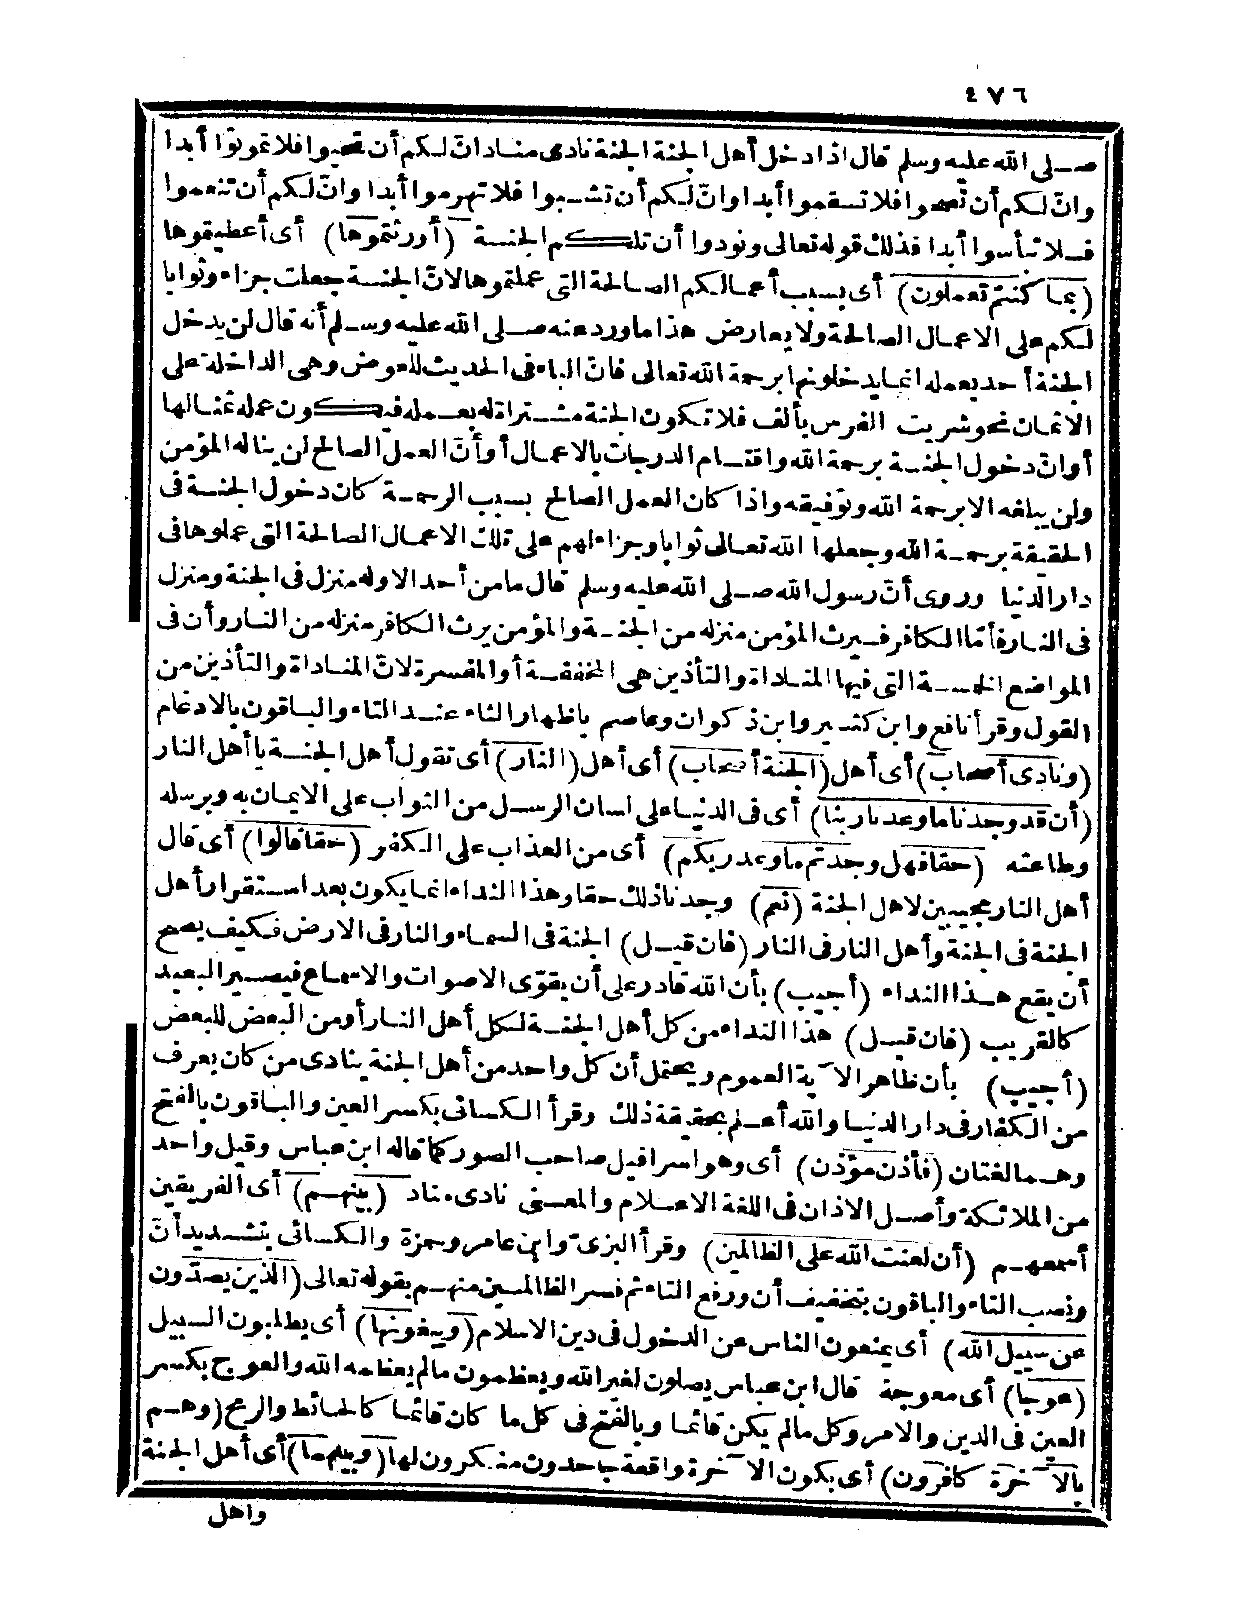 ٤٧٦
صلى الله عليه وسلم قال اذا دخل أهل الجنة الجنة نادى مناد انّ لكم أن تحيوا فلا تموتوا أبدا
وانّ لكم أن تصحوا فلا تسقموا أبدا وانّ لكم أن تشبوا فلا تهرموا أبدا وانّ لكم أن تنعموا
فلا تبأسوا أبدا فذلك قوله تعالى ونودوا أن تلكم الجنة (أورثتموها) أى أعطيتموها
(بما كنتم تعملون) أى بسبب أعمالكم الصالحة التى عملتموها لانّ الجنة جعلت جزاء وثوابا
لكم على الاعمال الصالحة ولا يعارض هذا ما ورد عنه صلى الله عليه وسلم أنه قال لن يدخل
الجنة أحد بعمله انما يدخلونها برحمة الله تعالى فانّ الباء فى الحديث للعوض وهى الداخلة على
الاثمان نحو شريت الفرس بألف فلا تكون الجنة مشتراة له بعمله فيكون عمله ثمنا لها
أوانّ دخول الجنة برحمة الله واقتسام الدرجات بالاعمال أو أنّ العمل الصالح لن يناله المؤمن
ولن يبلغه الا برحمة الله وتوفيقه واذا كان العمل الصالح بسبب الرحمة كان دخول الجنة فى
الحقيقة برحمة الله وجعلها الله تعالى ثوابا وجزاء لهم على تلك الاعمال الصالحة التى عملوها فى
دار الدنيا وروى أنّ رسول الله صلى الله عليه وسلم قال ما من أحد الا وله منزل فى الجنة ومنزل
فى النار فأمّا الكافر فيرث المؤمن منزله من الجنة والمؤمن يرث الكافر منزله من النار وأن فى
المواضع الخمسة التى فيها المناداة والتأذين هى المخففة أو المفسرة لانّ المناداة والتأذين من
القول وقرأ نافع وابن كثير وابن ذكوان وعاصم باظهار الثاء عند التاء والباقون بالادغام
(ونادى أصحاب) أى أهل (الجنة أصحاب) أى أهل (النار) أى تقول أهل الجنة يا أهل النار
(أن قد وجدنا ما وعدنا ربنا) أى فى الدنيا على لسان الرسل من الثواب على الايمان به وبرسله
وطاعته (حقا فهل وجدتم ما وعد ربكم) أى من العذاب على الكفر (حقا قالوا) أى قال
أهل النار مجيبين لاهل الجنة (نعم) وجدنا ذلك حقا وهذا النداء انما يكون بعد استقرار أهل
الجنة فى الجنة وأهل النار فى النار (فان قيل) الجنة فى السماء والنار فى الارض فكيف يصح
أن يقع هذا النداء (أجيب) بأن الله قادر على أن يقوّى الاصوات والاسماع فيصير البعيد
كالقريب (فان قيل) هذا النداء من كل أهل الجنة لكل أهل النار أو من البعض للبعض
(أجيب) بأن ظاهر الآية العموم ويحتمل أن كل واحد من أهل الجنة ينادى من كان يعرف
من الكفار فى دار الدنيا والله أعلم بحقيقة ذلك وقرأ الكسائى بكسر العين والباقون بالفتح
وهما لغتان (فأذن مؤذن) أى وهو اسرافيل صاحب الصور كما قاله ابن عباس وقيل واحد
من الملائكة وأصل الاذان فى اللغة الاعلام والمعنى نادى مناد (بينهم) أى الفريقين
أسمعهم (أن لعنت الله على الظالمين) وقرأ البزى وابن عامر وحمزة والكسائى بتشديد أنّ
ونصب التاء والباقون بتخفيف أن ورفع التاء ثم فسر الظالمين منهم بقوله تعالى (الذين يصدّون
عن سبيل الله) أى يمنعون الناس عن الدخول فى دين الاسلام (ويبغونها) أى يطلبون السبيل
(عوجا) أى معوجة قال ابن عباس يصلون لغير الله ويعظمون مالم يعظمه الله والعوج بكسر
العين فى الدين والامر وكل مالم يكن قائما وبالفتح فى كل ما كان قائما كالحائط والرمح (وهم
بالآخرة كافرون) أى بكون الآخرة واقعة جاحدون منكرون لها (وبينهما) أى أهل الجنة
واهل